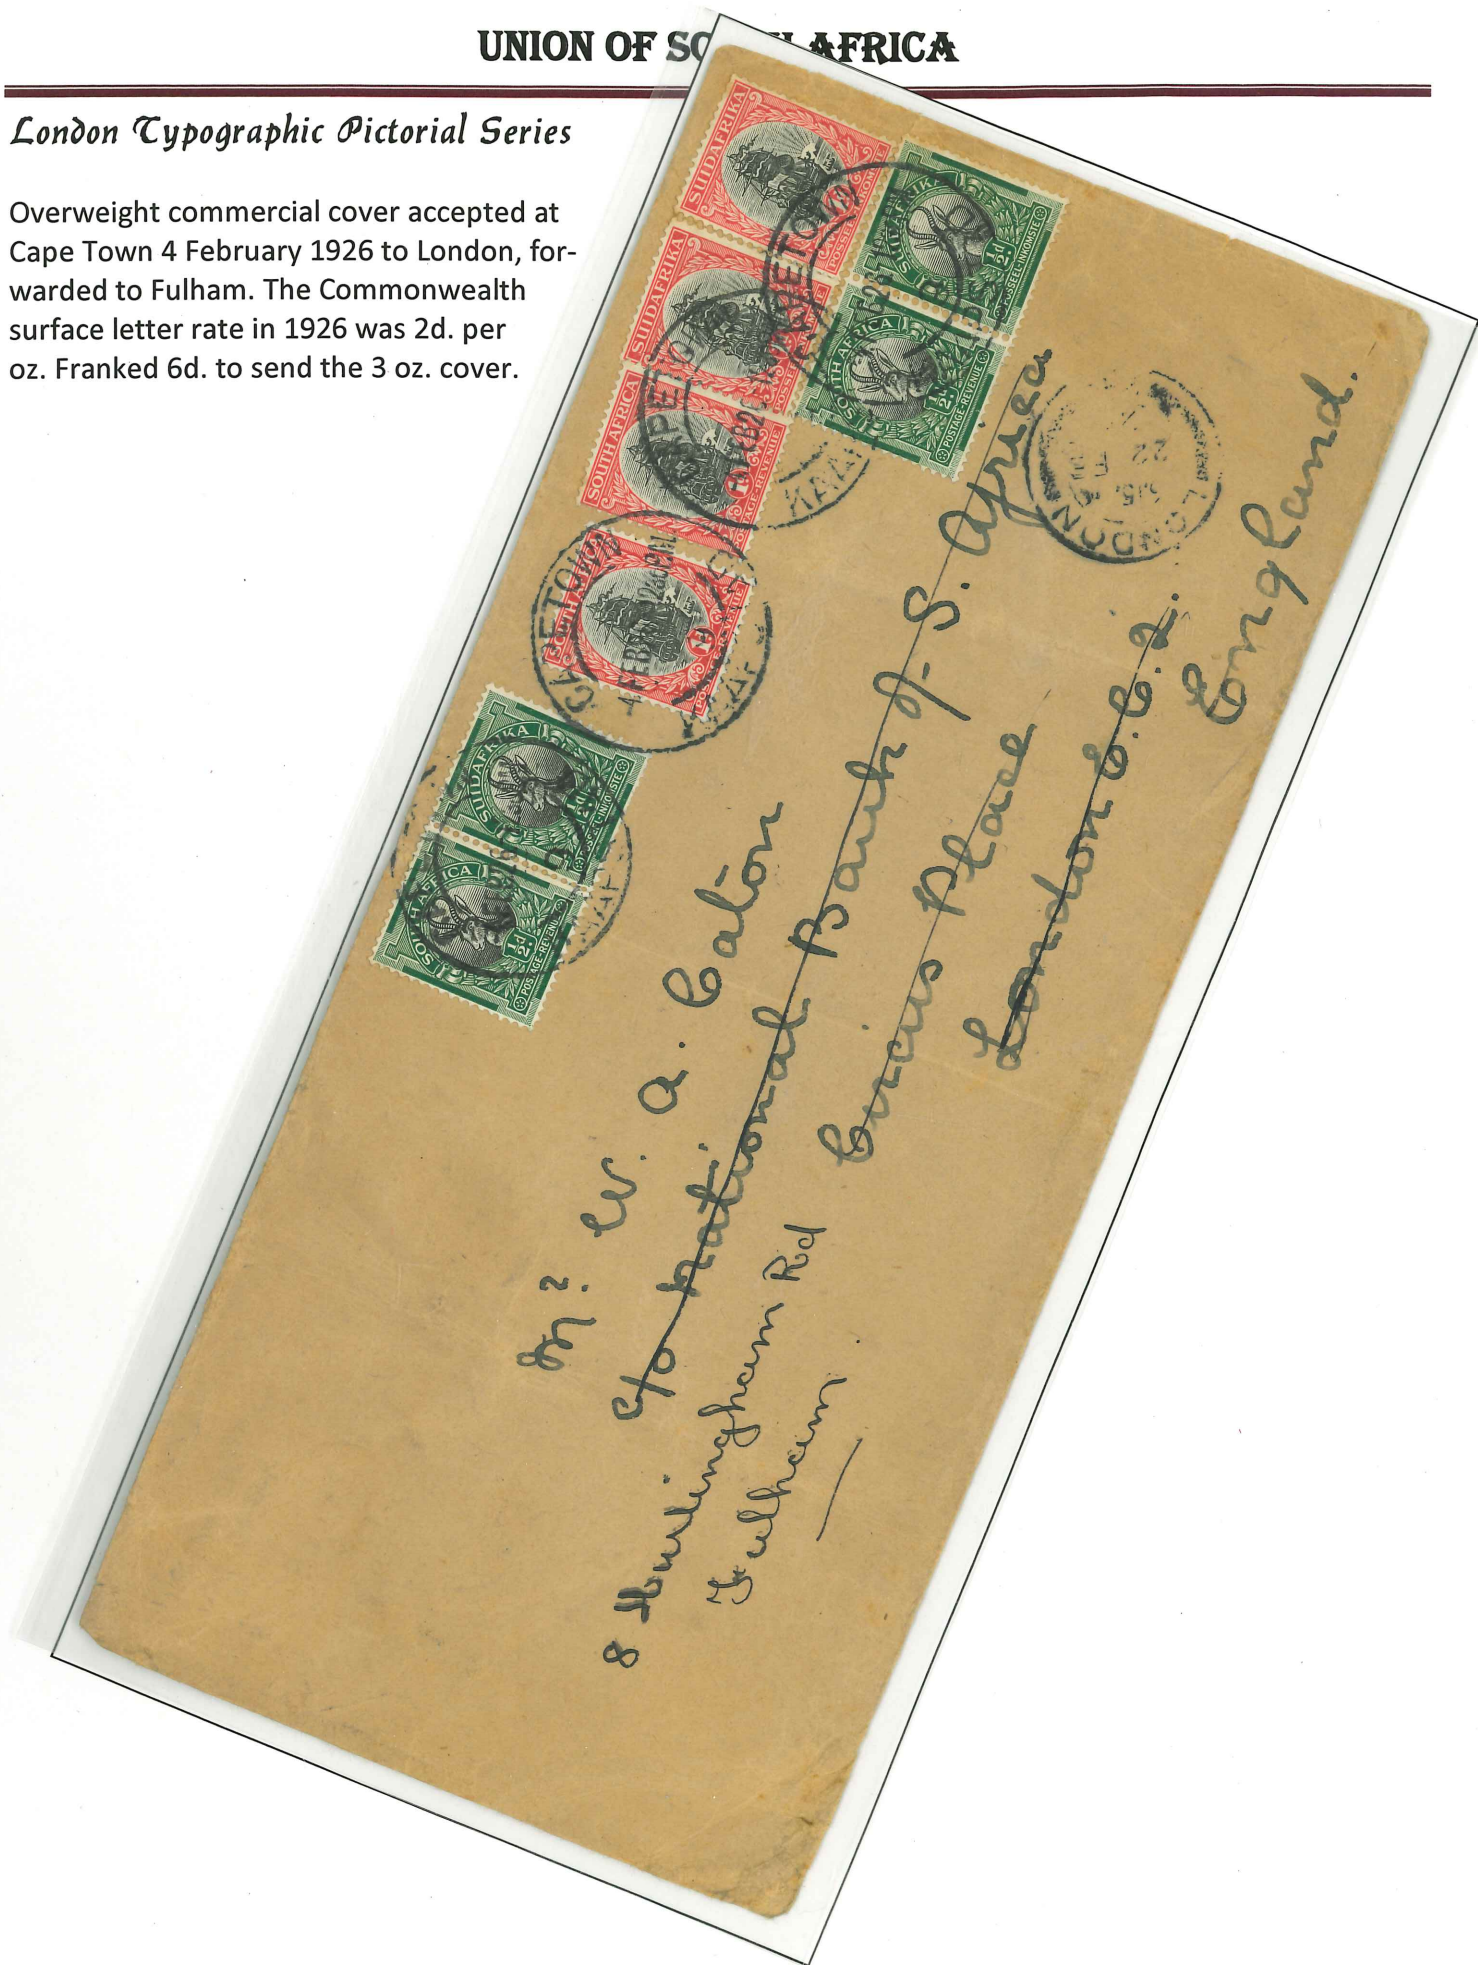 UNION OF SO AFRICA
London Typographic Pictorial Series
Overweight commercial cover accepted at
Cape Town 4 February 1926 to London, for-
warded to Fulham. The Commonwealth
surface letter rate in 1926 was 2d. per
oz. Franked 6d. to send the 3 oz. cover.
SUIDAFRIKA
SUIDAFRIKA
SOUTH AFRICA
POSTAGE-REVENUE
SOUTH AFRICA
SUIDAFRIKA
½d
POSSEEL-INKOMSTE
SOUTH AFRICA
½d
POSTAGE-REVENUE
SUIDAFRIKA
½d
POSSEEL-INKOMSTE
SOUTH AFRICA
½d
POSTAGE-REVENUE
CAPETOWN
CAPETOWN
KAAP
CAPETOWN
4 FEB
LONDON
22 FE
Mr. W. A. Caton
c/o National Bank of S. Africa
Circus Place
London E.C.2.
England.
8 Hurlingham Rd
Fulham